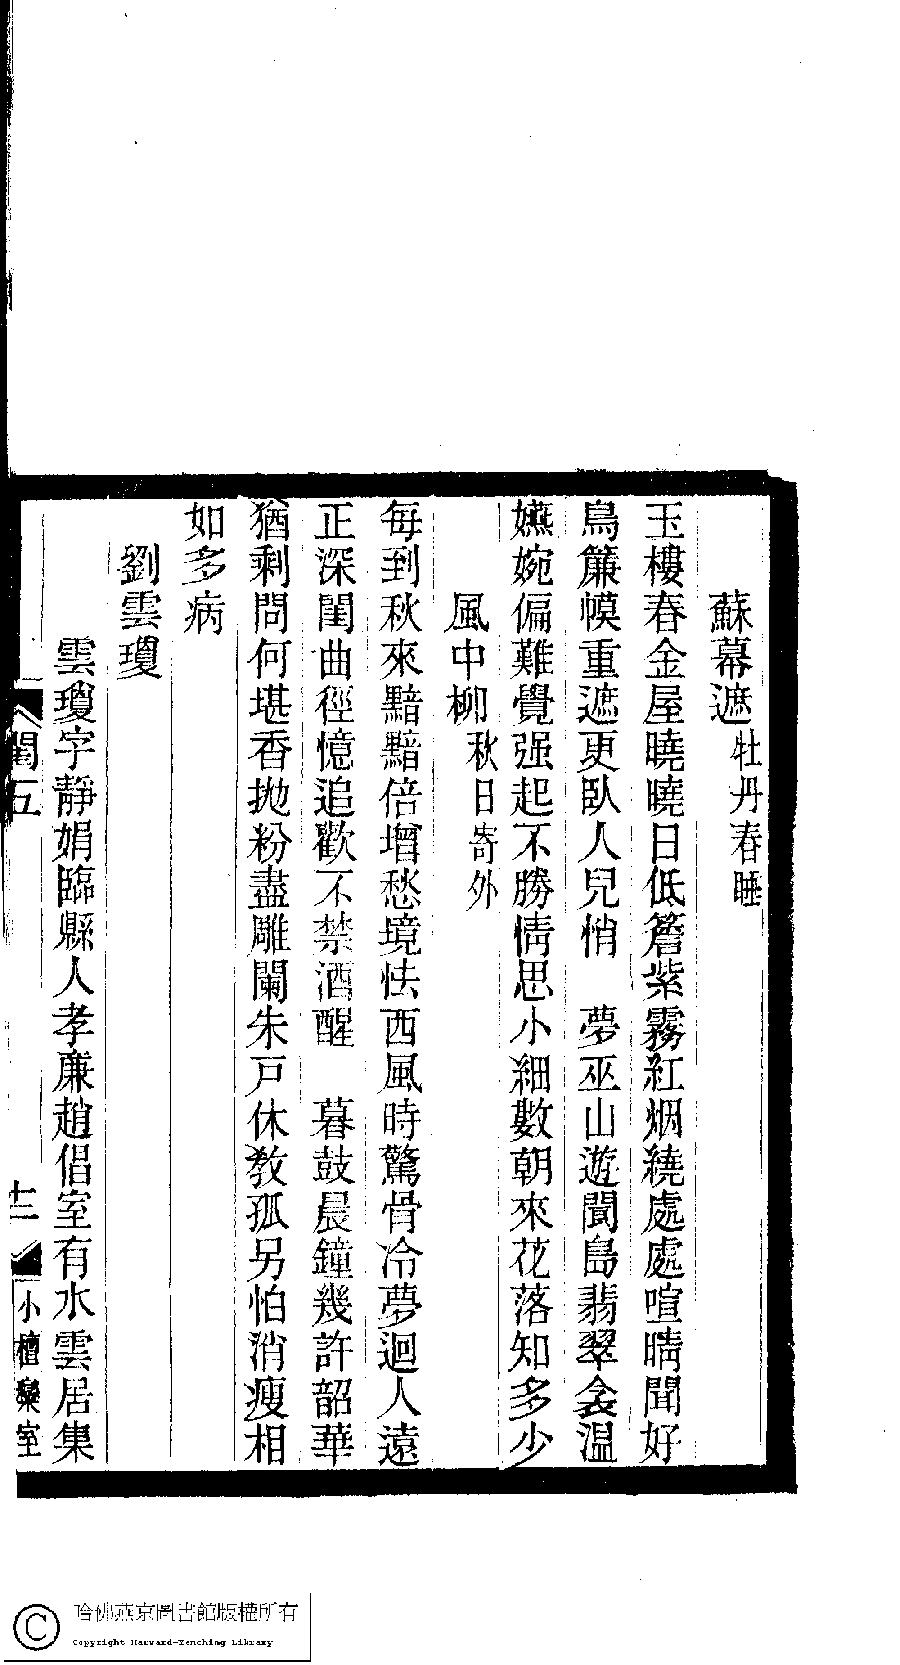 蘇幕遮牡丹春睡
玉樓春金屋曉曉日低簷紫霧紅烟繞處處喧晴聞好
鳥簾幙重遮更臥人兒悄　夢巫山遊閬島翡翠衾温
嬿婉偏難覺强起不勝情思小細數朝來花落知多少
風中柳秋日寄外
每到秋來黯黯倍增愁境怯西風時驚骨冷夢迴人遠
正深閨曲徑憶追歡不禁酒醒　暮鼓晨鐘幾許韶華
猶剩問何堪香拋粉盡雕闌朱戸休教孤另怕消瘦相
如多病
劉雲瓊
雲瓊字靜娟臨縣人孝廉趙倡室有水雲居集
閨五
十二
小檀欒室
哈佛燕京圖書館版權所有
Copyright Harvard-Yenching Library